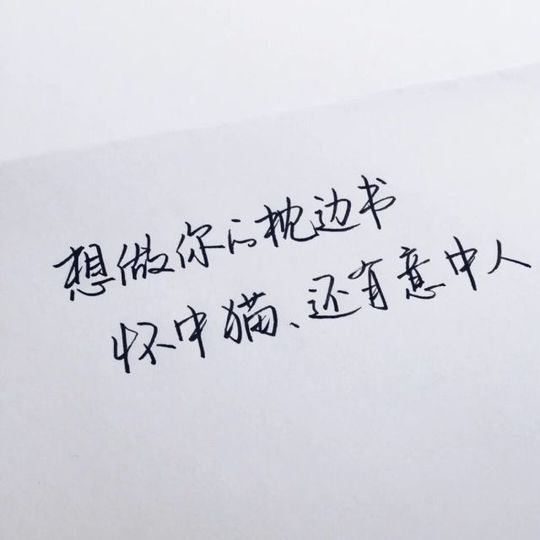 想做你的枕边书
怀中猫、还有意中人